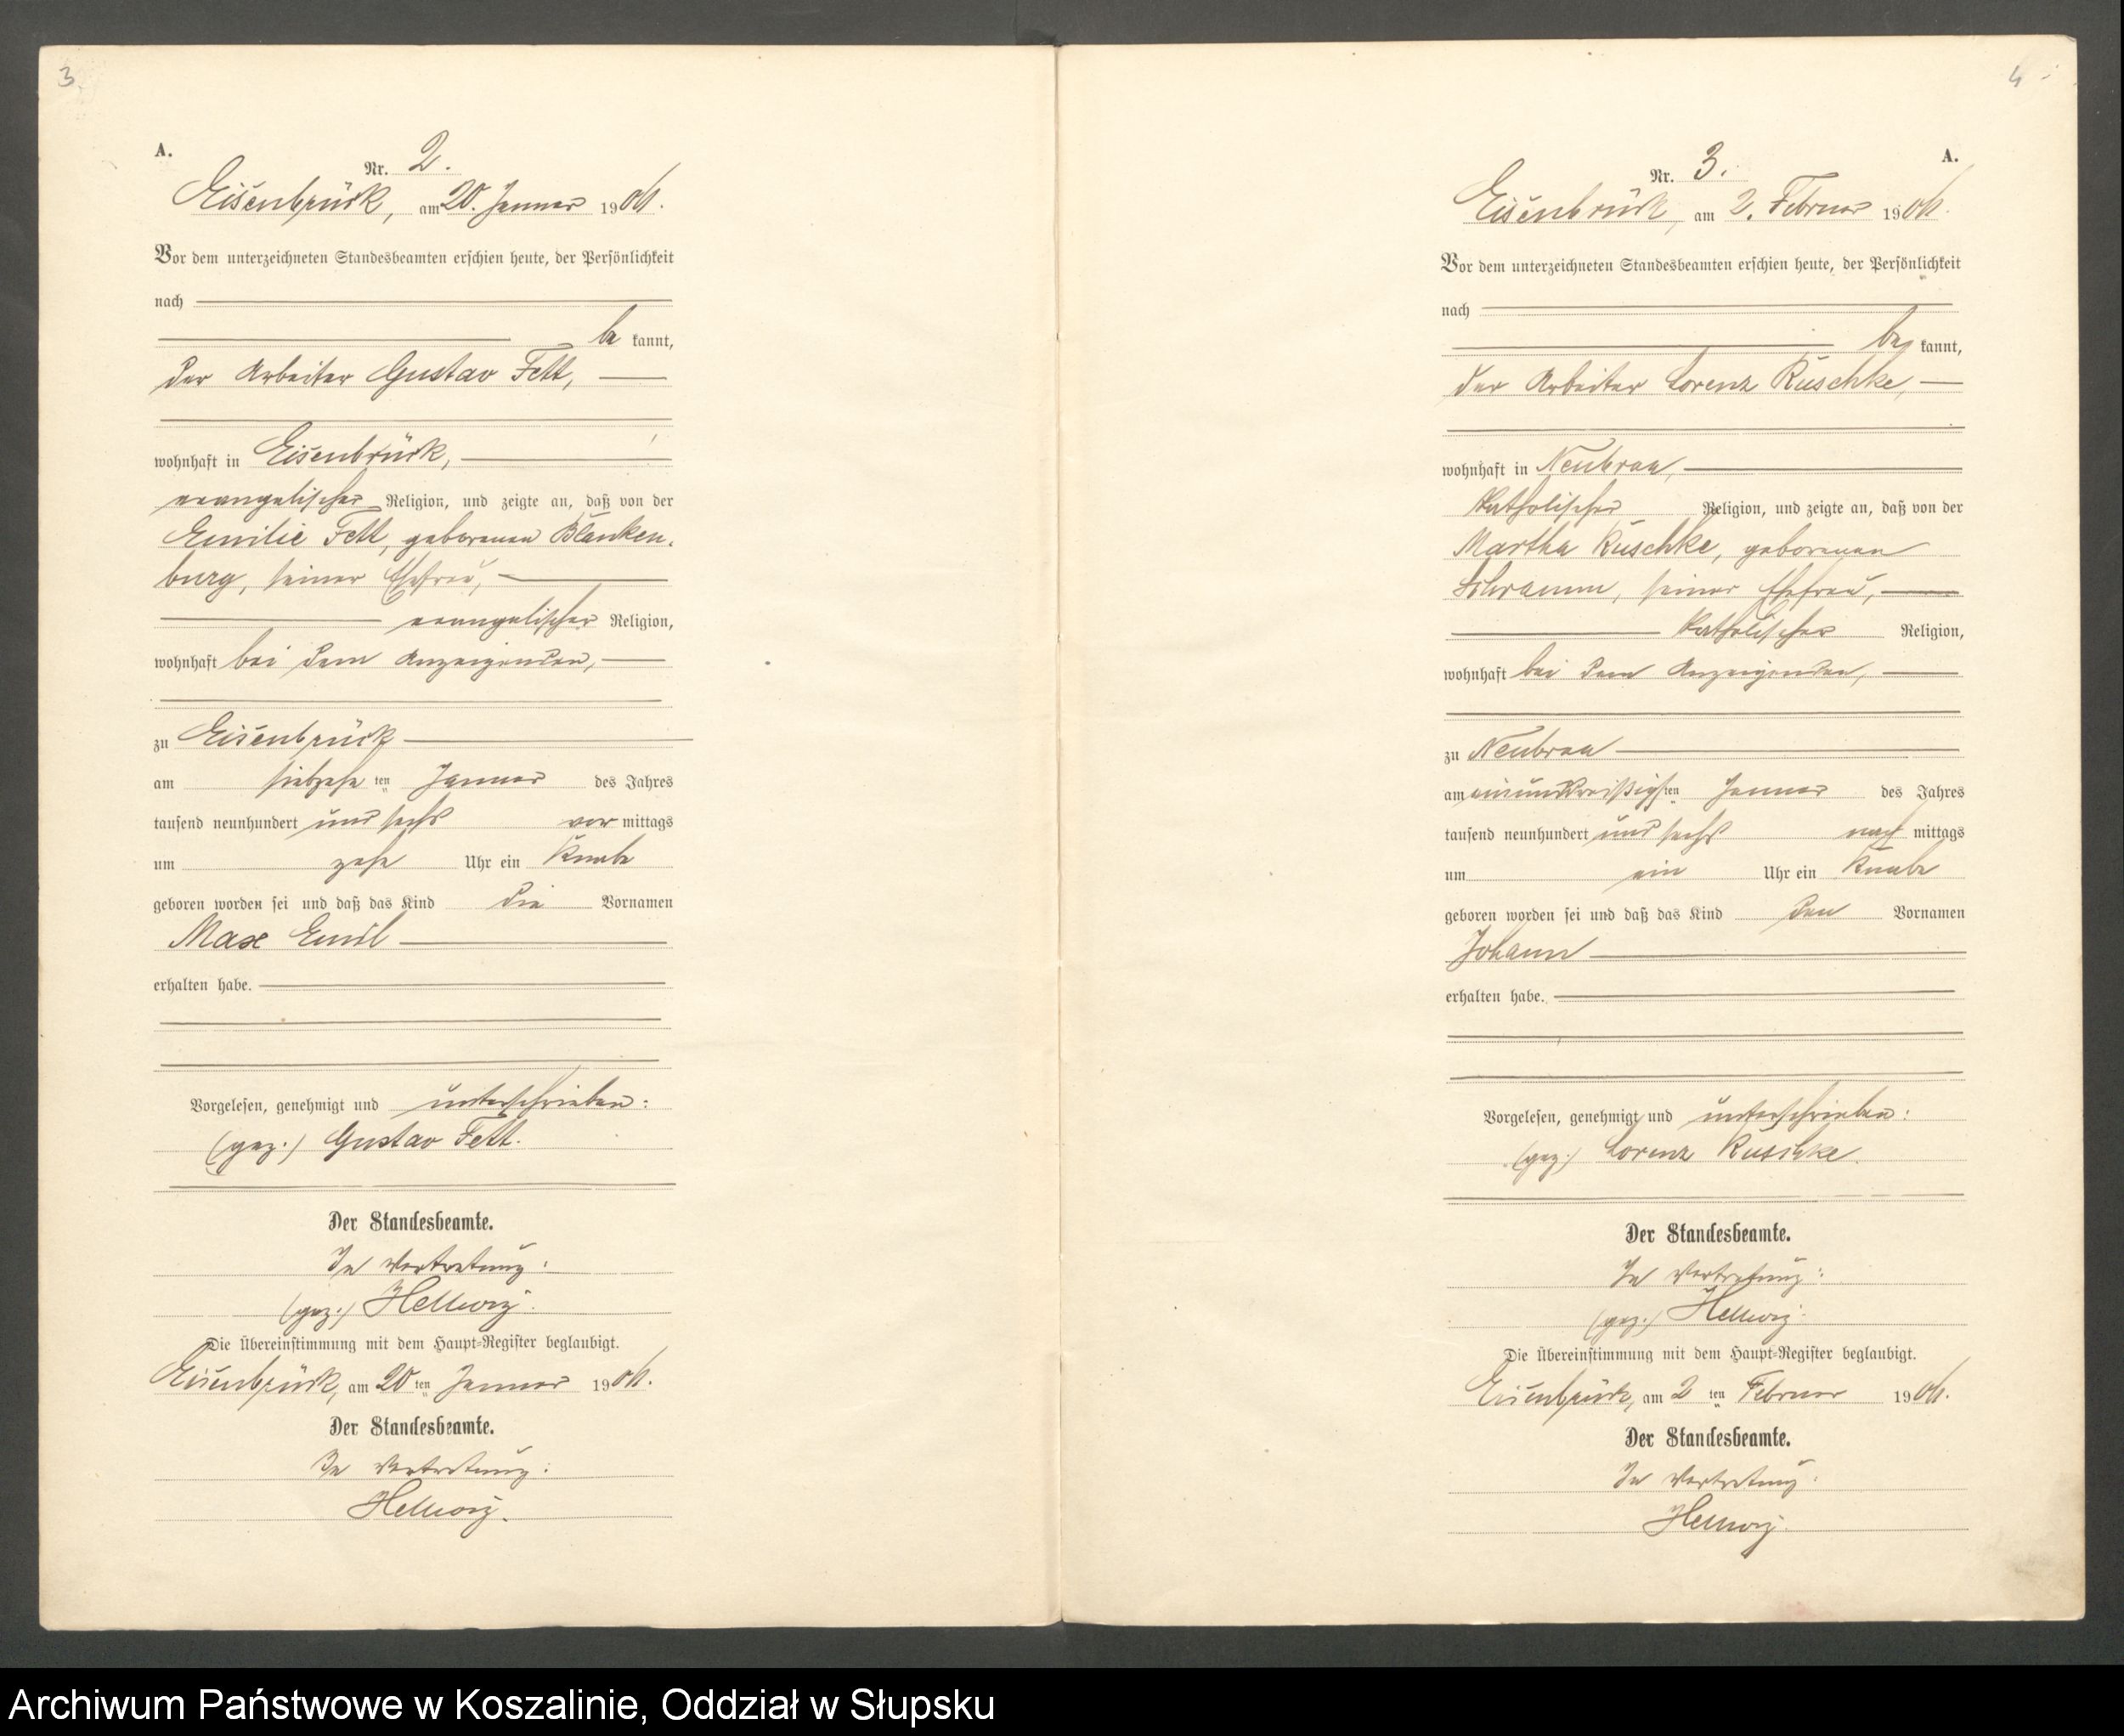 3
A.
Nr. 2.
Eisenbrück, am 20. Januar 1906.
Vor dem unterzeichneten Standesbeamten erschien heute, der Persönlichkeit
nach
be kannt,
der Arbeiter Gustav Fett,
wohnhaft in Eisenbrück,
evangelischer Religion, und zeigte an, daß von der
Emilie Fett, geborenen Blanken-
burg, seiner Ehefrau,
evangelischer Religion,
wohnhaft bei dem Anzeigenden,
zu Eisenbrück
am siebzehn ten Januar des Jahres
tausend neunhundert und sechs vor mittags
um zehn Uhr ein Knabe
geboren worden sei und daß das Kind die Vornamen
Max Emil
erhalten habe.
Vorgelesen, genehmigt und unterschrieben:
(gez.) Gustav Fett.
Der Standesbeamte.
In Vertretung:
(gez.) Hellwig.
Die Übereinstimmung mit dem Haupt-Register beglaubigt.
Eisenbrück, am 20 ten Januar 1906.
Der Standesbeamte.
In Vertretung:
Hellwig.
4
A.
Nr. 3.
Eisenbrück, am 2. Februar 1906.
Vor dem unterzeichneten Standesbeamten erschien heute, der Persönlichkeit
nach
be kannt,
der Arbeiter Lorenz Ruschke,
wohnhaft in Neubraa,
katholischer Religion, und zeigte an, daß von der
Martha Ruschke, geborenen
Schramm, seiner Ehefrau,
katholischer Religion,
wohnhaft bei dem Anzeigenden,
zu Neubraa
am einunddreißigsten Januar des Jahres
tausend neunhundert und sechs nach mittags
um ein Uhr ein Knabe
geboren worden sei und daß das Kind den Vornamen
Johann
erhalten habe.
Vorgelesen, genehmigt und unterschrieben:
(gez.) Lorenz Ruschke.
Der Standesbeamte.
In Vertretung:
(gez.) Hellwig.
Die Übereinstimmung mit dem Haupt-Register beglaubigt.
Eisenbrück, am 2 ten Februar 1906.
Der Standesbeamte.
In Vertretung:
Hellwig.
Archiwum Państwowe w Koszalinie, Oddział w Słupsku